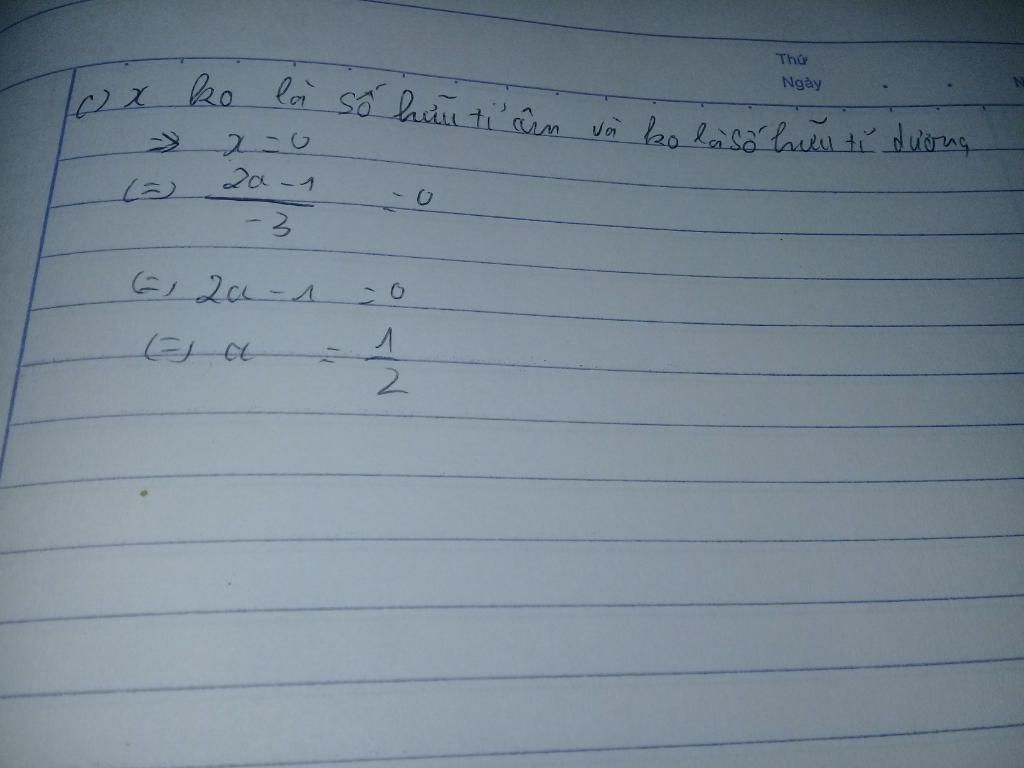 Thứ
Ngày
N
c) x ko là số hữu tỉ âm và ko là số hữu tỉ dương
=> x = 0
(=) 2a - 1 / -3 = 0
(=) 2a - 1 = 0
(=) a = 1 / 2